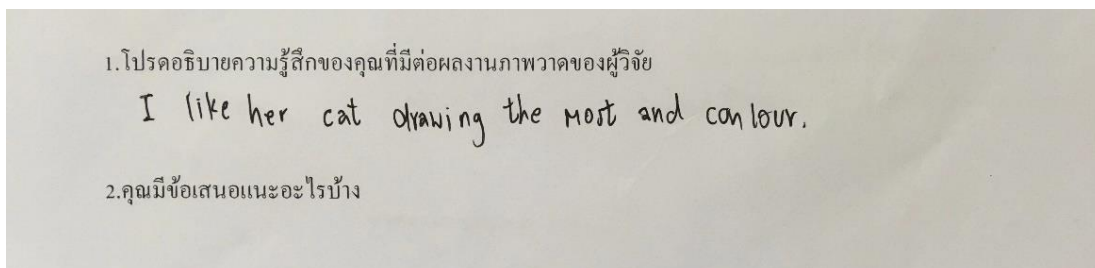 1.โปรดอธิบายความรู้สึกของคุณที่มีต่อผลงานภาพวาดของผู้วิจัย
I like her cat drawing the most and conlour.
2.คุณมีข้อเสนอแนะอะไรบ้าง